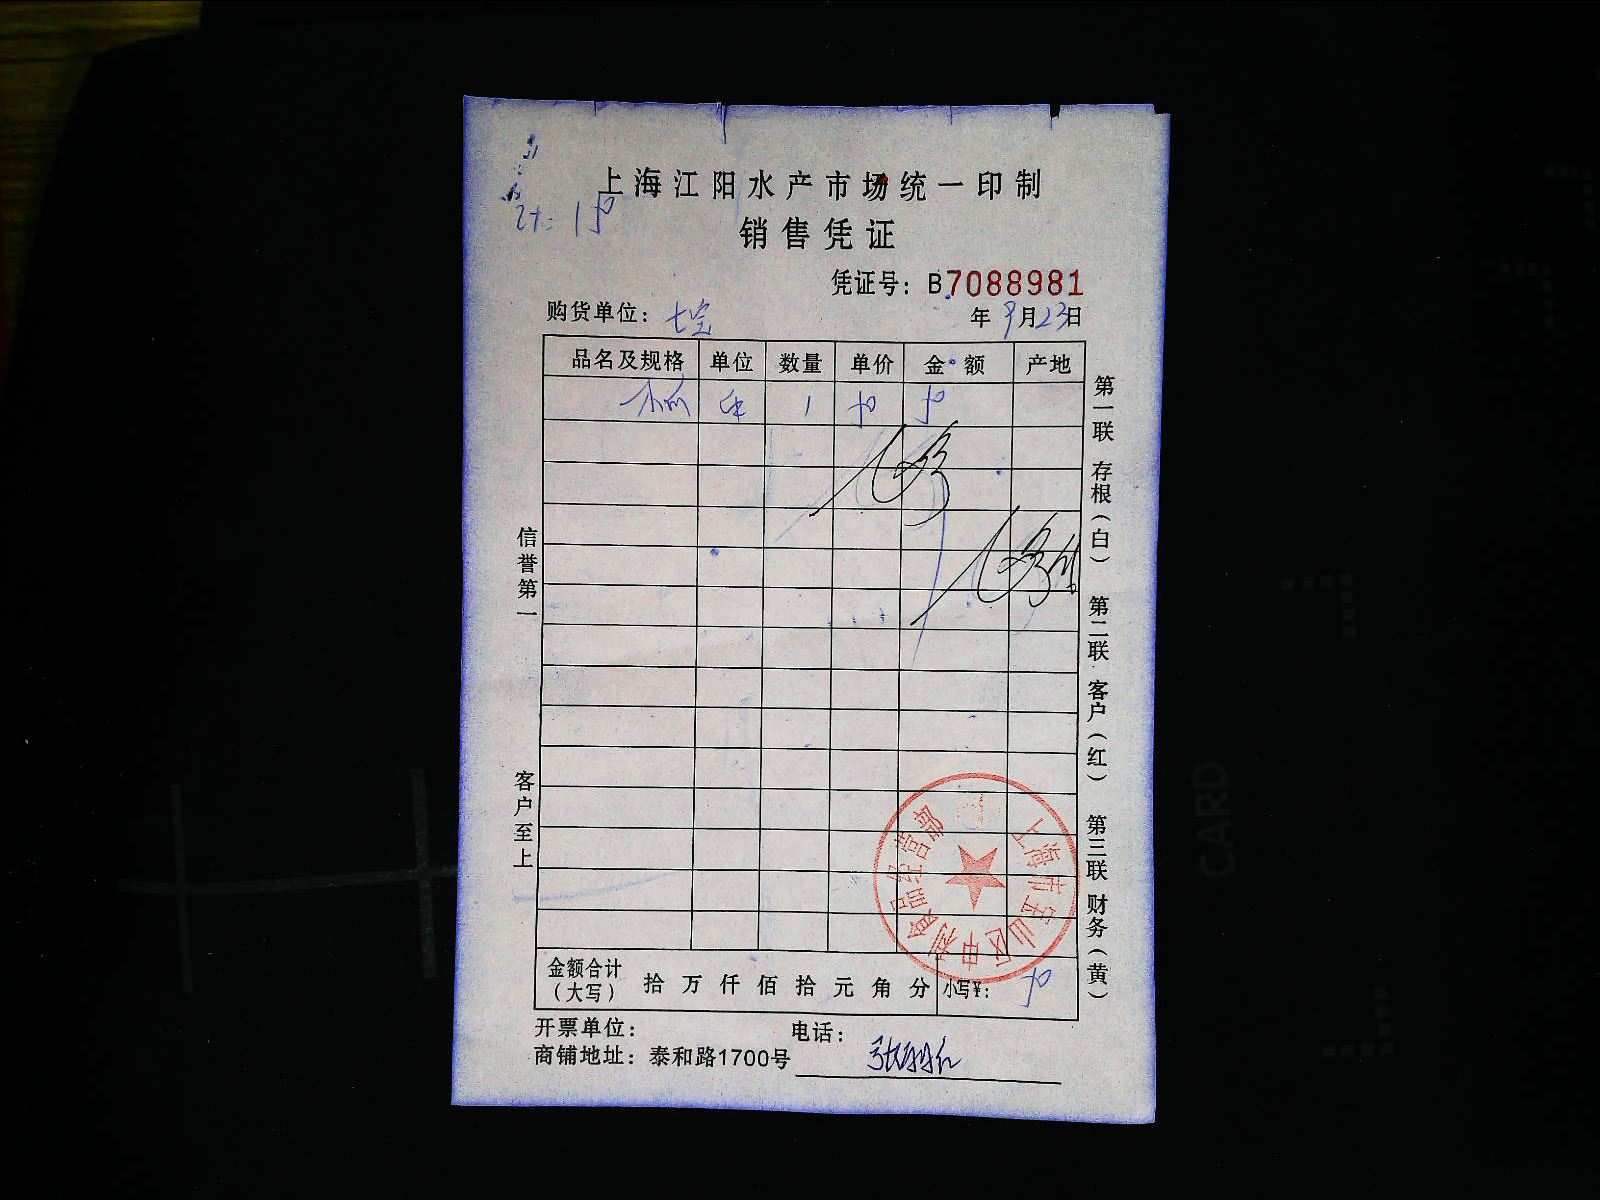 上海江阳水产市场统一印制
销售凭证
凭证号：B7088981
购货单位：七宝
年9月23日
品名及规格 单位 数量 单价 金额 产地
1
信誉第一
客户至上
第一联 存根（白） 第二联 客户（红） 第三联 财务（黄）
上海市宝山区申利食品经营部
金额合计（大写） 拾 万 仟 佰 拾 元 角 分 小写¥：
开票单位： 电话：
商铺地址：泰和路1700号